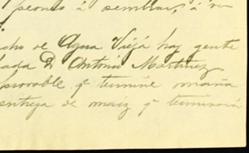 peones á sembrar, á
cho de Agua Vieja hay gente
lada D. Antonio Martinez
probable qe termine maña
entrega de maiz qe terminará